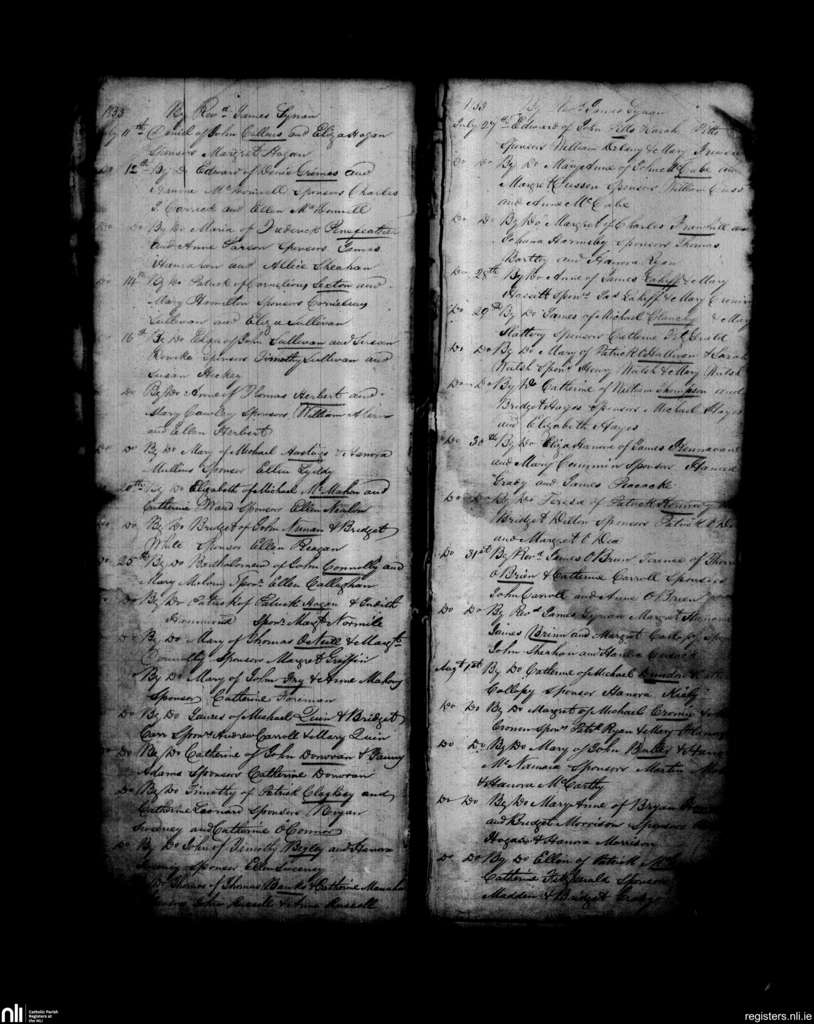 1833 By Revd James Synan
July 11th Daniel of John Collins and Eliza Hogan
Sponsors Margret Hogan
Do 12th By Do Edward of Denis Crimes and
Joanna McDonnell Sponsors Charles
J. Carrick and Ellen McDonnell
Do Do By Do Maria of Frederick
and Anne Parson Sponsors James
Hanrahan and Allice Sheahan
Do 14th By Do Patrick of Cornelious Sexton and
Mary Hamilton Sponsors Cornelious
Sullivan and Eliza Sullivan
Do 16th By Do Eliza of John Sullivan and Susan
Rourke Sponsors Timothy Sullivan and
Susan Hickey
Do By Do Anne of Thomas Herbert and
Mary Cauley Sponsors William Ahern
and Ellen Herbert
Do Do By Do Mary of Michael Hastings & Honora
Mullins Sponsor Ellen Lyddy
20th By Do Elizabeth of Michael McMahon and
Catherine Ward Sponsors Ellen Neulon
Do By Do Bridget of John Neenan & Bridget
White Sponsor Ellen Reagan
Do 25th By Do Bartholomew of John Connolly and
Mary Malone Sponr Ellen Callaghan
Do By Do Patrick of Patrick Hogan & Judith
Hammond Sponr Margt Normile
Do By Do Mary of Thomas O'Neill & Margt
Connolly Sponsors Margret Griffin
By Do Mary of John Fry & Anne Mahony
Sponsor Catherine Foreman
Do By Do James of Michael Quin & Bridget
Carr Sponrs Andrew Carroll & Mary Quin
Do By Do Catherine of John Donovan & Fanny
Adams Sponsors Catherine Donovan
Do By Do Timothy of Patrick Clophesy and
Catherine Leonard Sponsors Morgan
Sweeney and Catherine O'Connor
Do By Do John of Timothy Begley and Honora
Sponsor Ellen Sweeney
By Do Thomas of Thomas Banks & Catherine
Russell & Anne Russell
1833 By Revd James Synan
July 27th Edward of John Pitts Sarah Pitts
Sponsors William & Mary
Do Do By Do Mary Anne of John McCabe and
Margret Cusson Sponsors William Cuss
and Anne McCabe
Do Do By Do Margret of Charles and
Johana Hornsby Sponsors Thomas
Bartley and Hanora Ryan
Do 28th By Do Anne of James Lahiff & Mary
Hassett Sponrs Jas Lahiff & Mary
Do 29th By Do James of Michael Clancey & Mary
Slattery Sponsors Catherine FitzGerald
Do Do By Do Mary of Patrick O'Hallivan & Sarah
Walsh Sponr Henry Walsh & Mary Walsh
Do Do By Do Catherine of William Thompson and
Bridget Hayes Sponsors Michael Hayes
and Elizabeth Hayes
Do 30th By Do Eliza Hanora of James
and Mary Cummin Sponsor Hanora
Crady and James Peacock
Do Do By Do Teresa of Patrick
Bridget Dillon Sponsors Patrick O'Dea
and Margret O'Dea
Do 31st By Revd James O'Brien Terence of Thomas
O'Brien & Catherine Carroll Sponsors
John Carroll and Anne O'Brien
Do Do By Revd James Synan Margret Hanora
James Brinn and Margret Sponr
John Sheahan and Hanora Cusack
Augt 1st By Do Catherine of Michael Dundon &
Gallopy Sponsor Hanora Kirby
Do Do By Do Margret of Michael Cronin &
Cronin Sponrs Patk Ryan & Mary
Do Do By Do Mary of John Butler &
McNamara Sponsors Martin
& Hanora McCarthy
Do Do By Do Mary Anne of Bryan
and Bridget Morrison Sponsors
Hogan & Hanora Morrison
Do Do By Do Ellen of Patrick
Catherine FitzGerald Sponsors
Madden & Bridget
nli
Catholic Parish
Registers at
the NLI
registers.nli.ie